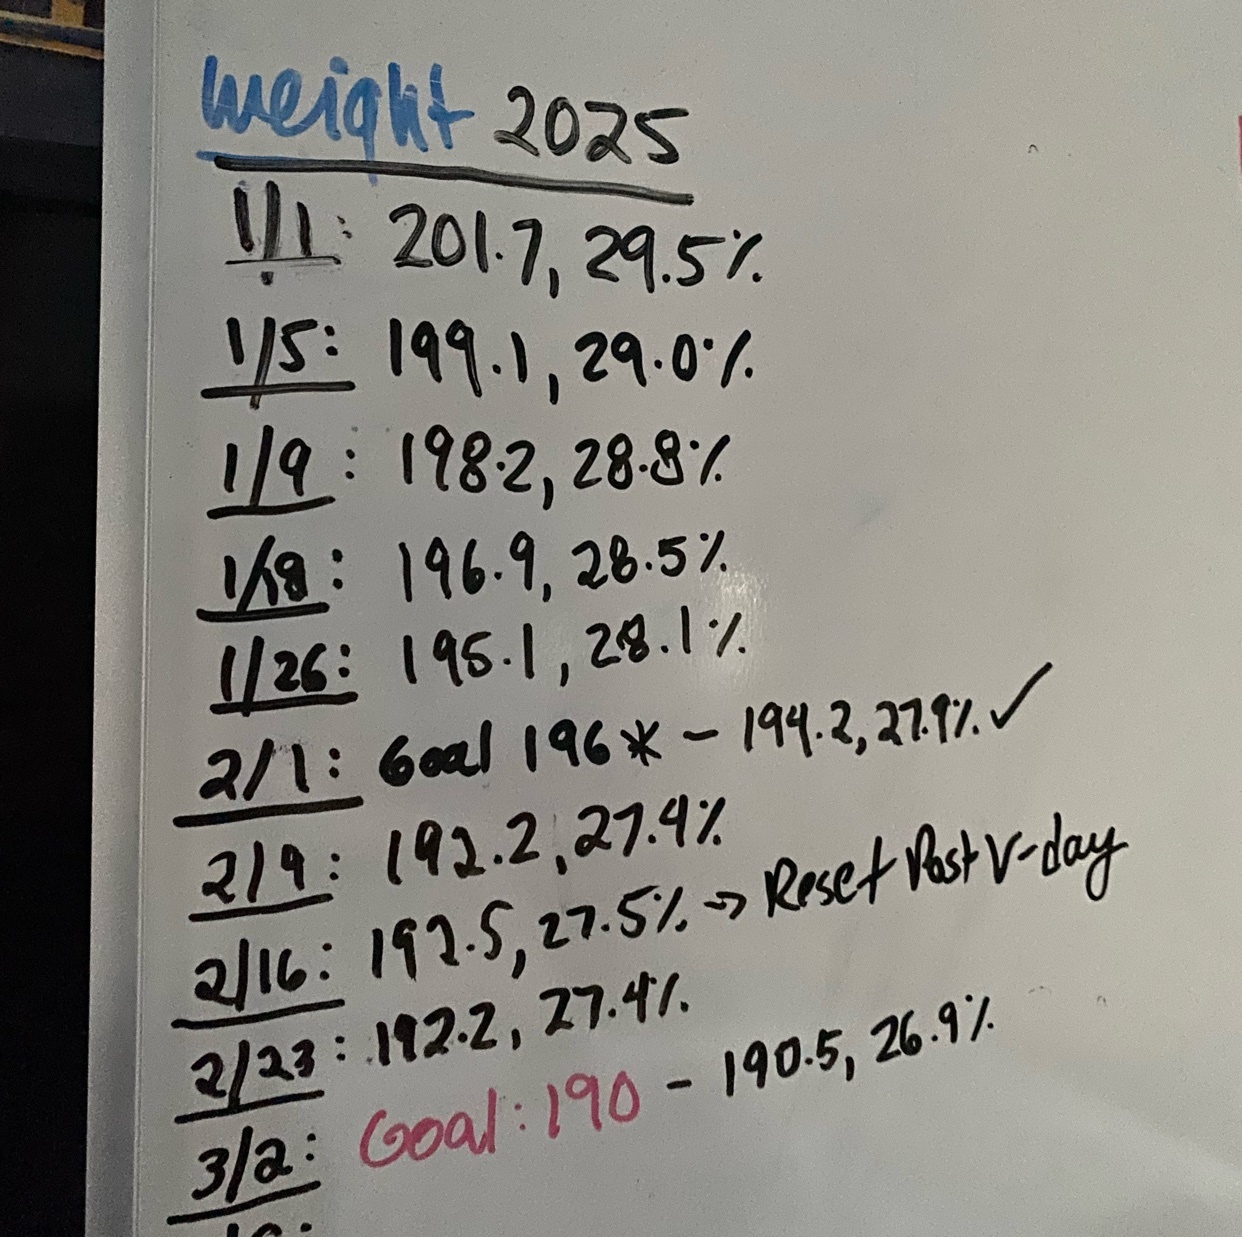 weight 2025
1/1: 201.7, 29.5%
1/5: 199.1, 29.0%
1/9: 198.2, 28.8%
1/18: 196.9, 28.5%
1/26: 195.1, 28.1%
2/1: Goal 196* - 194.2, 27.9% ✓
2/9: 192.2, 27.4%
2/16: 192.5, 27.5% → Reset Post V-day
2/23: 192.2, 27.4%
3/2: Goal: 190 - 190.5, 26.9%